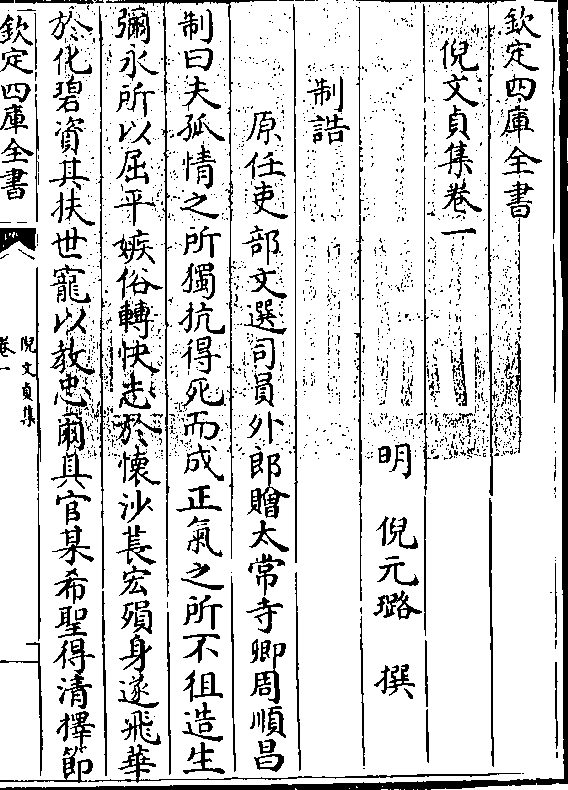 欽定四庫全書
倪文貞集卷一
明 倪元璐 撰
制誥
原任吏部文選司員外郎贈太常寺卿周順昌
制曰夫孤情之所獨抗得死而成正氣之所不徂造生
彌永所以屈平嫉俗轉快志於懷沙萇宏殞身遂飛華
於化碧資其扶世寵以教忠爾具官某希聖得清擇節
欽定四庫全書
倪文貞集
卷一
二